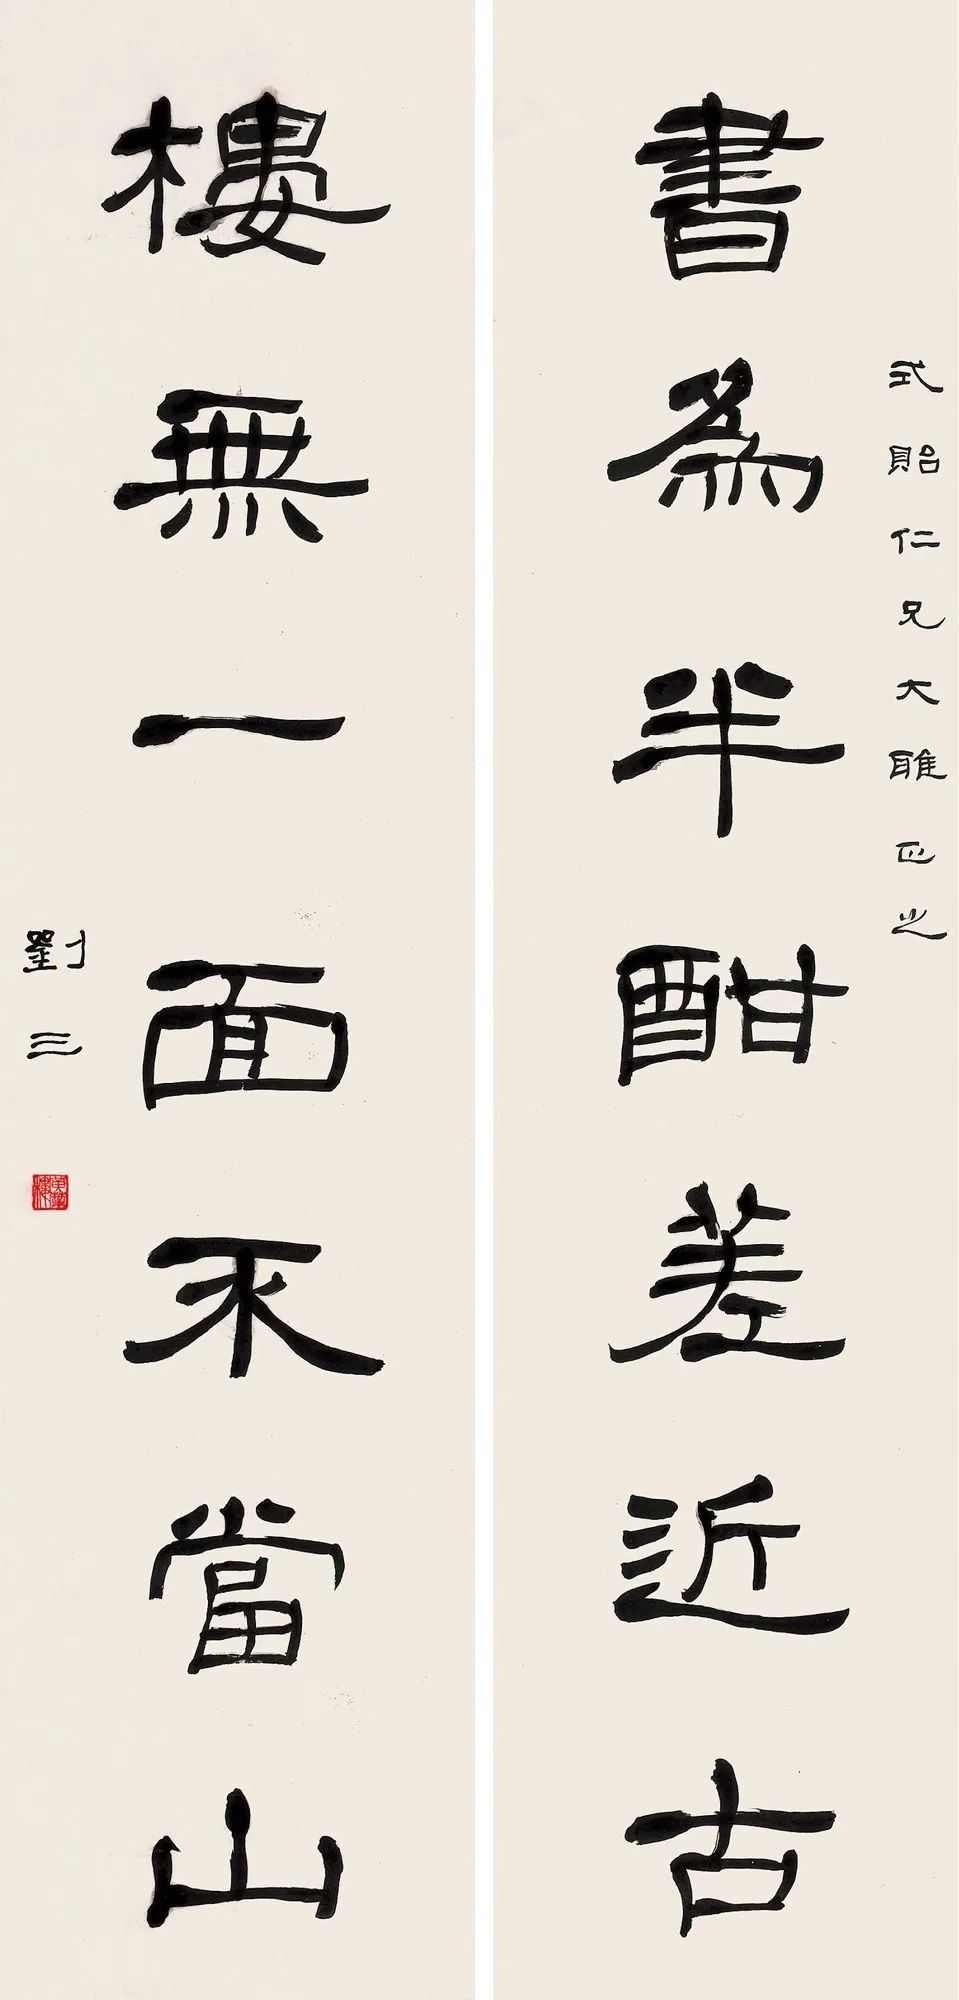 式貽仁兄大雅正之
書為半酣差近古
樓無一面不當山
劉三
黃葉樓